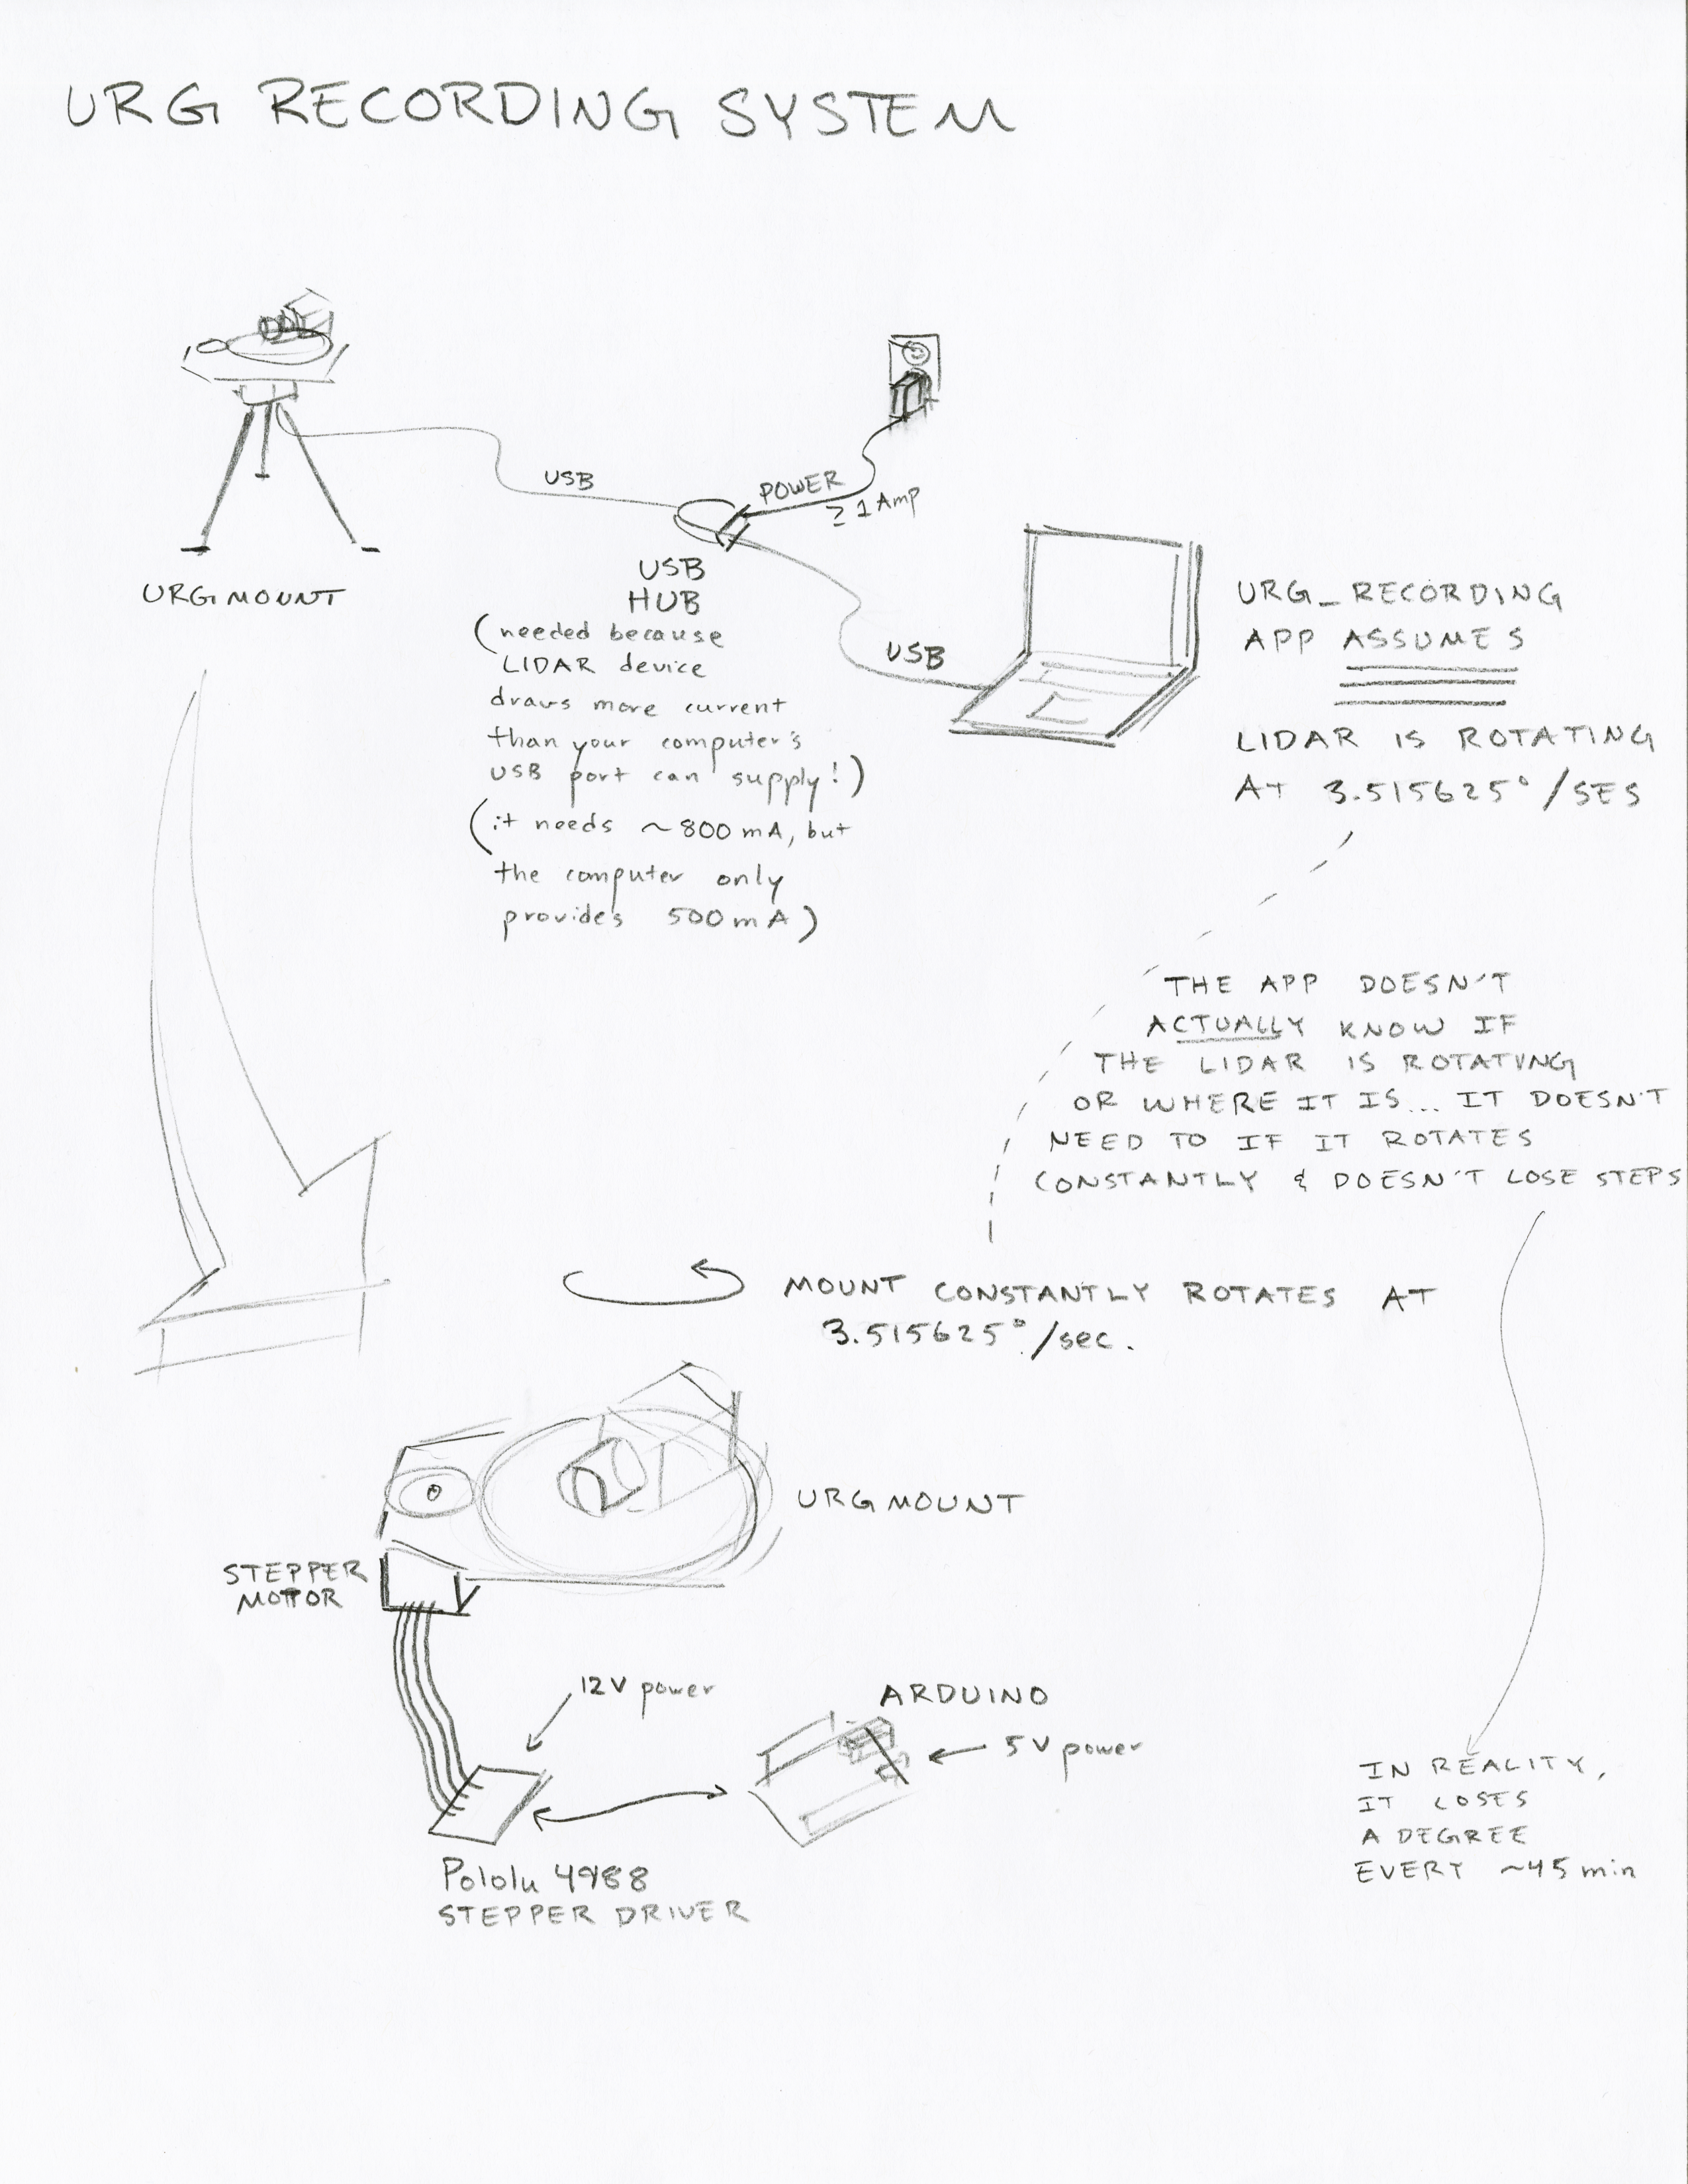 URG RECORDING SYSTEM
USB
POWER
≥ 1 Amp
URG MOUNT
USB
HUB
(needed because
LIDAR device
draws more current
than your computer's
USB port can supply!)
(it needs ~800 mA, but
the computer only
provides 500 mA)
USB
URG_RECORDING
APP ASSUMES
LIDAR IS ROTATING
AT 3.515625°/SES
THE APP DOESN'T
ACTUALLY KNOW IF
THE LIDAR IS ROTATING
OR WHERE IT IS... IT DOESN'T
NEED TO IF IT ROTATES
CONSTANTLY & DOESN'T LOSE STEPS
MOUNT CONSTANTLY ROTATES AT
3.515625°/sec.
URG MOUNT
STEPPER
MOTOR
12V power
ARDUINO
5V power
Pololu 4988
STEPPER DRIVER
IN REALITY,
IT LOSES
A DEGREE
EVERY ~45 min